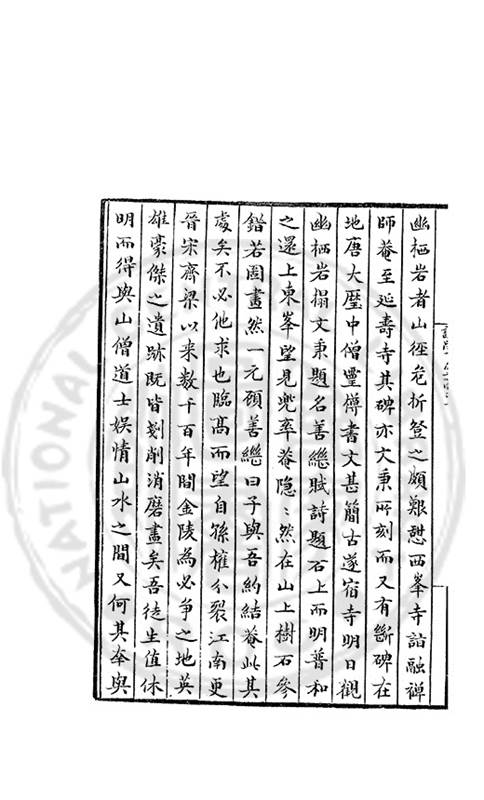 幽栖岩者山徑危折登之頗艱憇西峯寺詣融禪
師菴至延壽寺其碑亦文秉所刻而又有斷碑在
地唐大曆中僧靈傅書文甚簡古遂宿寺明日觀
幽栖岩榻文秉題名善繼賦詩題石上而明普和
之還上東峯望見兜率菴隐〻然在山上樹石參
錯若圖畫然一元顧善繼曰子與吾約結菴此其
處矣不必他求也臨高而望自孫權分裂江南更
晉宋齊梁以来數千百年間金陵為必争之地英
雄豪傑之遺跡既皆剗削消磨盡矣吾徒生值休
明而得與山僧道士娯情山水之間又何其幸與
NATIONAL